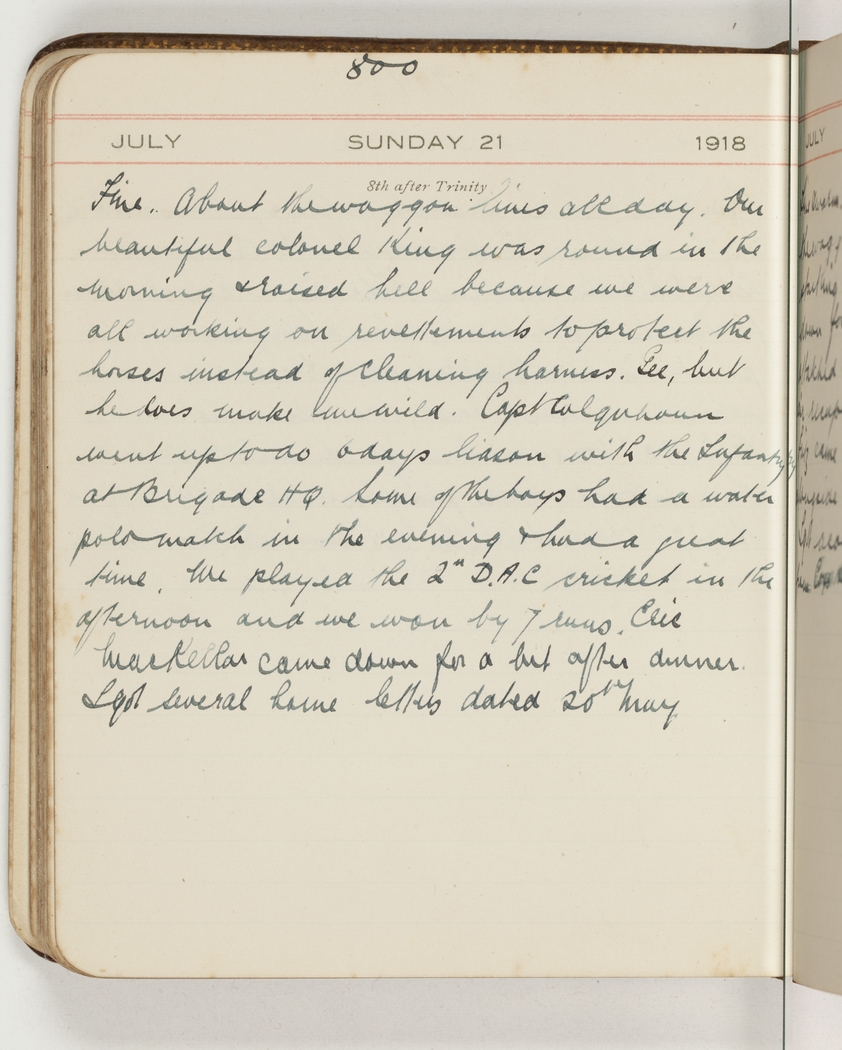 800
JULY SUNDAY 21 1918
8th after Trinity
Fine. About the waggon lines all day. Our
beautiful colonel King was round in the
morning & raised hell because we were
all working on revettements to protect the
horses instead of cleaning harness. Gee, but
he does make me wild. Capt Colquhoun
went up to do 6 days liason with the Infantry
at Brigade HQ. Some of the boys had a water
polo match in the evening & had a great
time. We played the 2nd D.A.C cricket in the
afternoon and we won by 7 runs. Eric
MacKellar came down for a bit after dinner.
I got several home letters dated 20th May
JULY